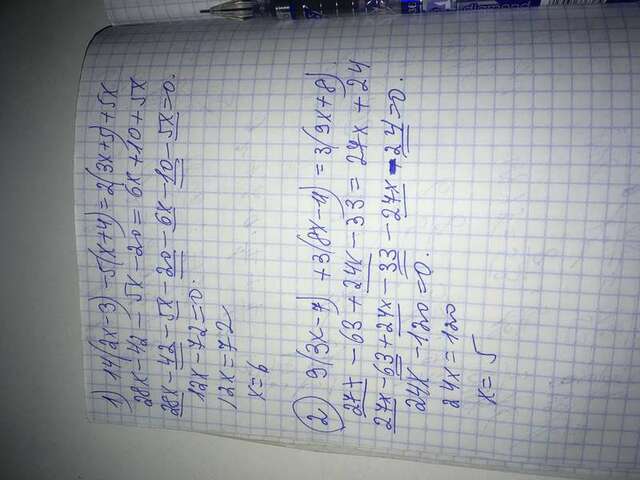 1) 14(2x-3)-5(x+4)=2(3x+5)+5x
28x-42-5x-20=6x+10+5x
28x-42-5x-20-6x-10-5x=0.
12x-72=0.
12x=72
x=6
2 9(3x-7)+3(8x-11)=3(9x+8).
27x-63+24x-33=27x+24
27x-63+24x-33-27x-24=0.
24x-120=0.
24x=120
x=5